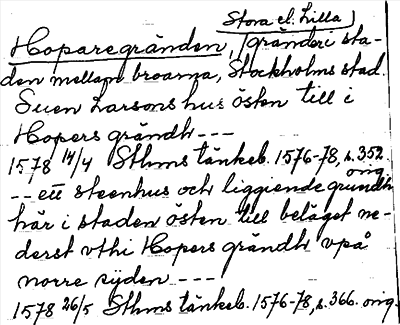 Stora el. Lilla
Hoparegränden, (gränder i sta-
den mellan broarna, Stockholms stad.
Suen Larsons hus östen till i
Hopers grändh ---
1578 14/4 Sthms tänkeb. 1576-78, s. 352
orig.
-- ett steenhus och liggiende grundh
här i staden östen till beläget ne-
derst vthi Hopers grändh vpå
norre syden ---
1578 26/5 Sthms tänkeb. 1576-78, s. 366. orig.